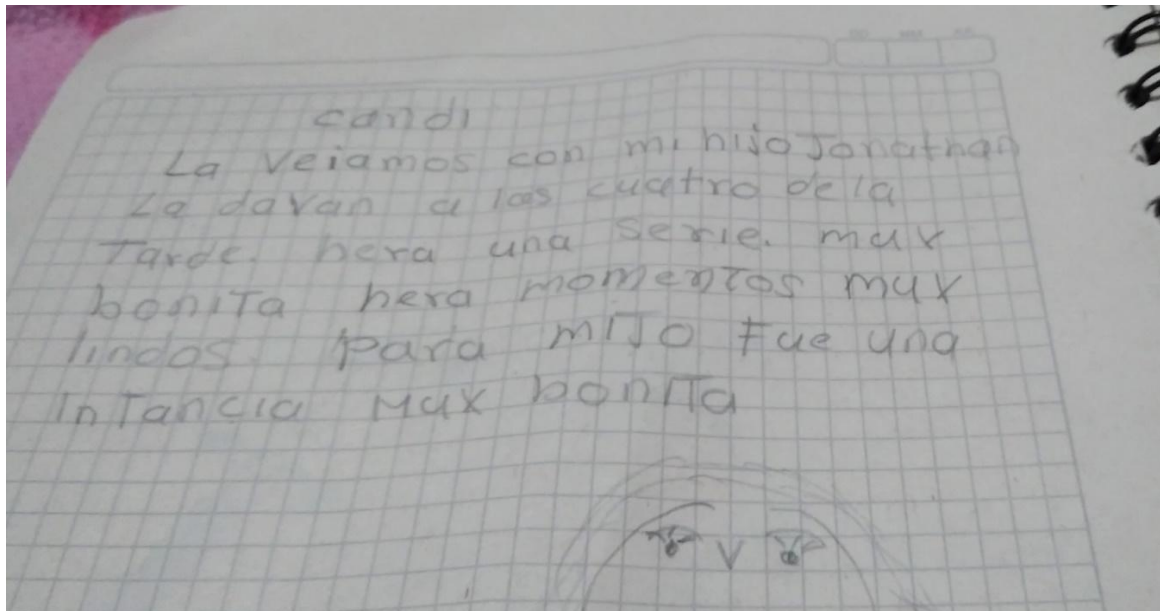 candi
La veiamos con mi hijo Jonathan
La davan a las cuatro de la
Tarde. hera una serie. muy
bonita hera momentos muy
lindos. Para mijo Fue una
inTancia Muy boniTa